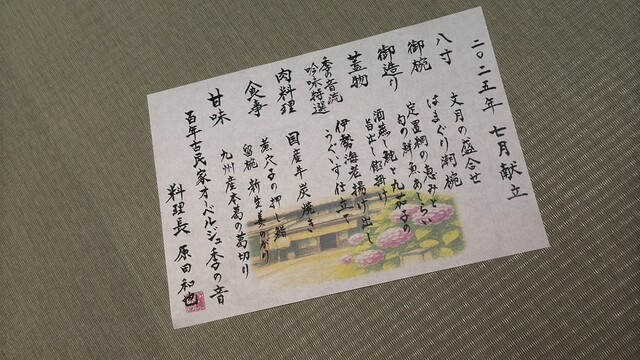 二〇二五年 七月献立
八寸 文月の盛合せ
御椀 はまぐり潮椀
御造り 定置網の恵みと
旬の鮮魚あしらい
蓋物 酒蒸し鮑と丸茄子の
旨出し餡掛け
季の音流
吟味特選 伊勢海老揚げ出し
うぐいす仕立て
肉料理 国産牛炭焼き
食事 煮穴子の押し鮨
留椀 新生姜の香り
甘味 九州産本葛の葛切り
百年古民家オーベルジュ季の音
料理長 原田和也